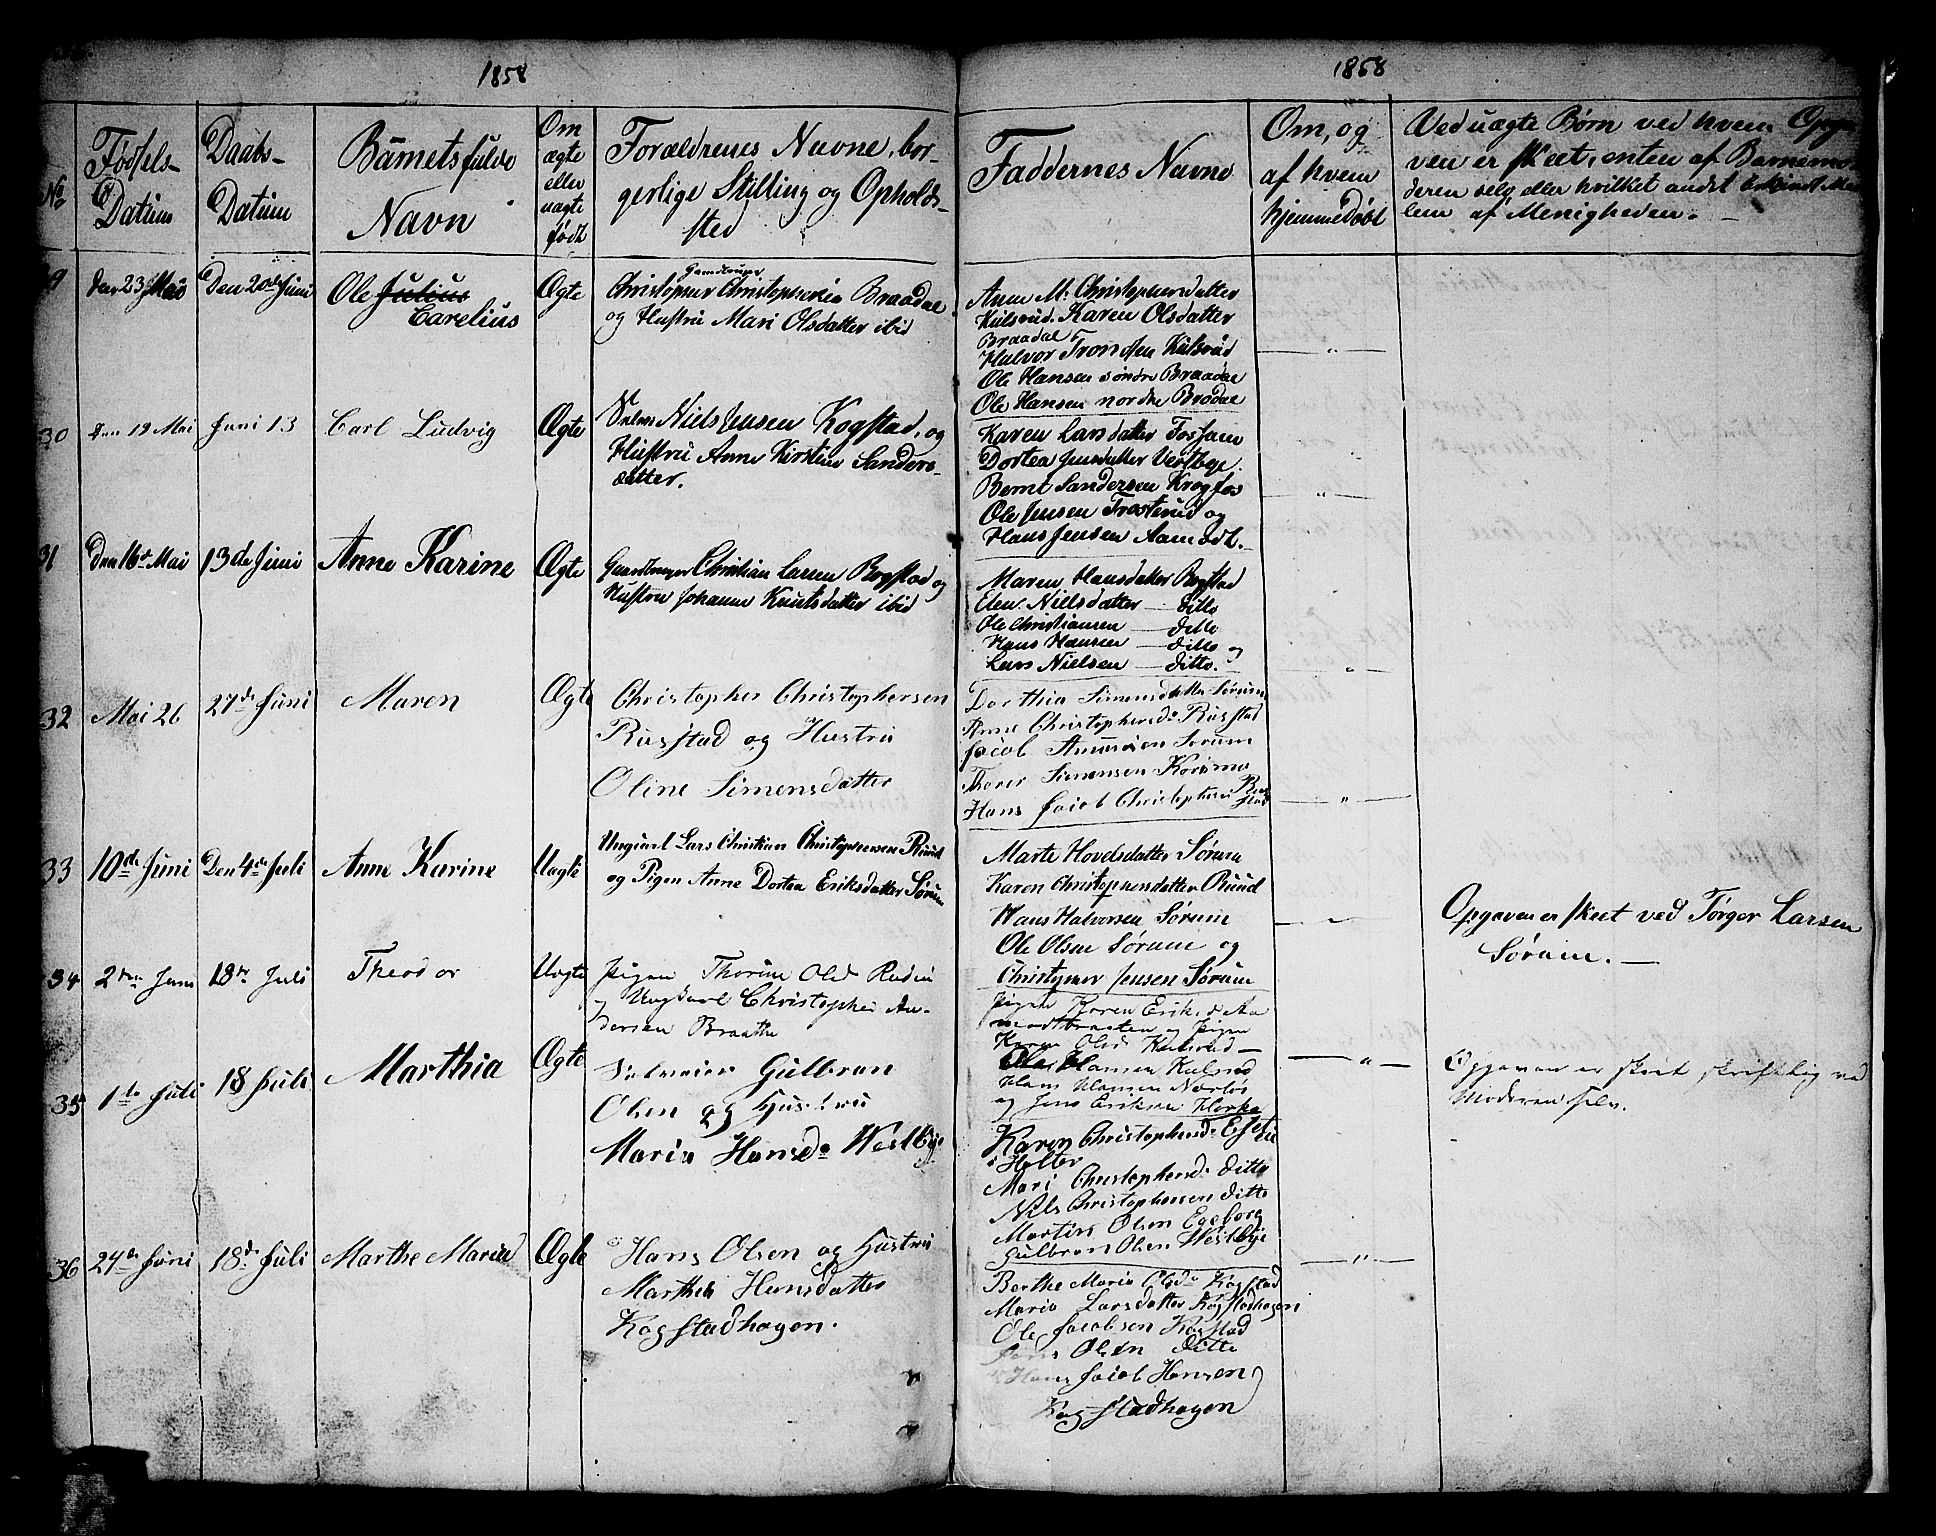 1858
1858
No
Fødsels-
Datum
Daabs-
Datum
Barnets fulde
Navn
Om
ægte
eller
uægte
født
Forældrenes Navne, bor-
gerlige Stilling og Opholds-
sted
Faddernes Navne
Om, og
af hvem
hjemmedøbt
Ved uægte Børn ved hvem Opga
ven er skeet, enten af Barnemo
deren selv eller hvilket andet bekjendt Med
lem af Menigheden.
den 23 Mai
Den 20de Juni
Ole Julius
Carelius
Ægte
Gaardbruger
Christopher Christophersen Braadal
og Hustru Mari Olsdatter ibid
Anne M. Christophersdatter
Kulsrud. Karen Olsdatter
Braadal
Halvor Tronsen Kulsrud
Ole Hansen søndre Braadal
Ole Hansen nordre Brodal
30
Den 19 Mai
Juni 13
Carl Ludvig
Ægte
Niels Jensen Kogstad, og
Hustru Anne Kirstine Sanders-
datter.
Karen Larsdatter Fossum
Dortea Jensdatter Vestbye.
Bernt Sandersen Krogfos
Ole Jensen Trosterud og
Hans Jensen Aamodt.
31
Den 16de Mai
13de Juni
Anne Karine
Ægte
Gaardbruger Christian Larsen Rogstad og
Hustru Johanne Knutsdatter ibid
Maren Hansdatter Rogstad
Elen Nielsdatter — ditto
Ole Christiansen — ditto
Hans Hansen — ditto og
Lars Nielsen — ditto.
32
Mai 26
27de Juni
Maren
Ægte
Christopher Christophersen
Russtad og Hustru
Oline Simensdatter
Dorthia Simensdatter Sørum
Anne Christophersd. Russtad
Jacob Amundsen Sørum
Thorer Simensen Korsmo
Hans Jacob Christophersen Rus
stad
33
10de Juni
Den 4de Juli
Anne Karine
Uægte
Ungkarl Lars Christian Christophersen Ruud
og Pigen Anne Dortea Eriksdatter Sørum
Marte Hovelsdatter Sørum
Karen Christophersdatter Ruud
Hans Halvorsen Sørum
Ole Olsen Sørum og
Christopher Jensen Sørum
Opgaven er skeet ved Tørger Larsen
Sørum.
34
2den Juni
18de Juli
Theodor
Uægte
Pigen Thorine Olsd
og Ungkarl Christopher An-
dersen Braathe
Pigen Karen Eriksd Aa
modtbraaten og Pigen
Karen Olsd Kulsrud
Ole Hansen Kulsrud
Hans Hansen Nærløs
og Jens Eriksen
Opgaven er skeet skriftlig ved
Moderen selv.
35
1de Juli
18 Juli
Marthia
Ægte
Selveier Gulbran
Olsen og Hustru
Maria Hansd. Westbye
Karen Christophersd.
i Holter
Mari Christophersd. ditto
Nils Christophersen ditto
Martin Olsen Egeborg
Gulbran Olsen Westbye
36
24de Juni
18de Juli
Marthe Maria
Ægte
Hans Olsen og Hustru
Marthea Hansdatter
Kogstadhagen.
Berthe Maria Olsd. Kogstad
Maria Larsdatter Kogstadhagen
Ole Jacobsen Kogstad
Olsen ditto
Hans Jacob Hansen
Kogstadhagen